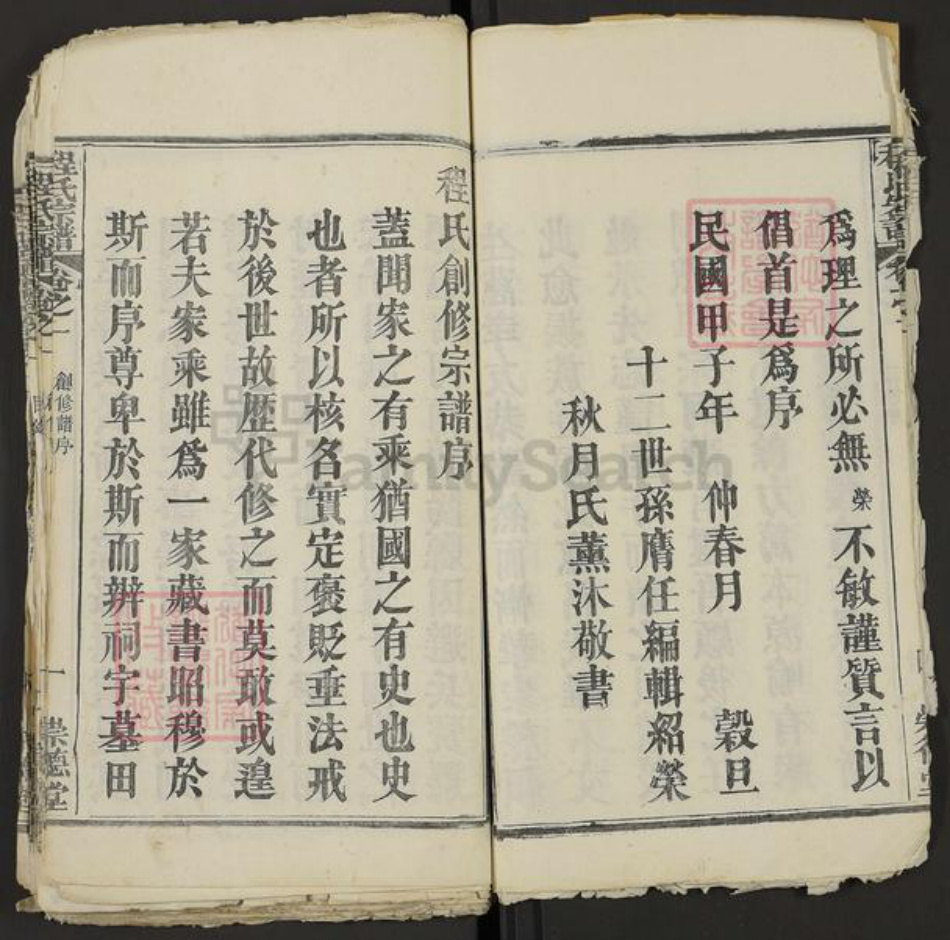 爲理之所必無榮不敏謹質言以
倡首是爲序
民國甲子年 仲春月 穀旦
十二世孫膺任編輯紹榮
秋月氏薰沐敬書
程氏創修宗譜序
蓋聞家之有乘猶國之有史也史
也者所以核名實定褒貶垂法戒
於後世故歷代修之而莫敢或遑
若夫家乘雖爲一家藏書昭穆於
斯而序尊卑於斯而辨祠宇墓田
程氏宗譜 卷之一 創修譜序 一 崇德堂
FamilySearch